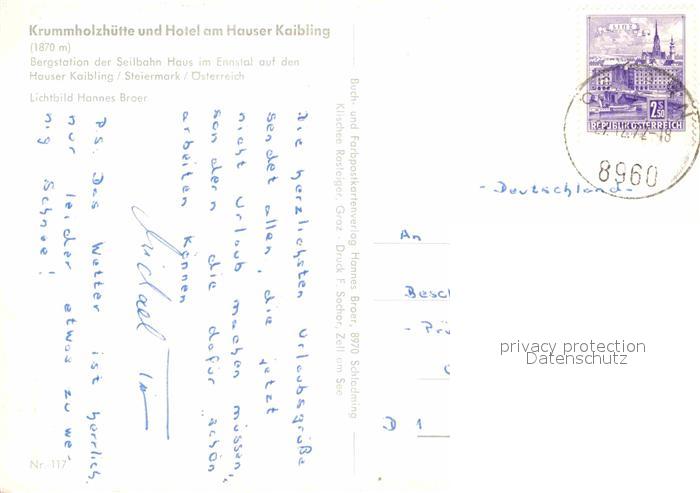 Krummholzhütte und Hotel am Hauser Kaibling
(1870 m)
Bergstation der Seilbahn Haus im Ennstal auf den
Hauser Kaibling / Steiermark / Österreich
Lichtbild Hannes Broer
Die herzlichsten Urlaubsgrüße
sendet allen, die jetzt
nicht Urlaub machen müssen,
sondern die dafür "schön"
arbeiten können
Michael
P.S. Das Wetter ist herrlich,
nur leider etwas zu we-
nig Schnee!
Nr. 117
Buch- und Farbpostkartenverlag Hannes Broer, 8970 Schladming
Klischee Rasteiger, Graz · Druck F. Sochor, Zell am See
LINZ
2.50
S
REPUBLIK ÖSTERREICH
72-18
8960
- Deutschland -
An
Besch
- Prü
D 1
privacy protection
Datenschutz